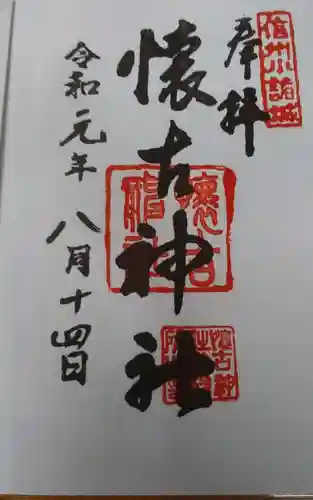 奉拝
信州小諸城
懐古神社
懐古神社
令和元年八月十四日